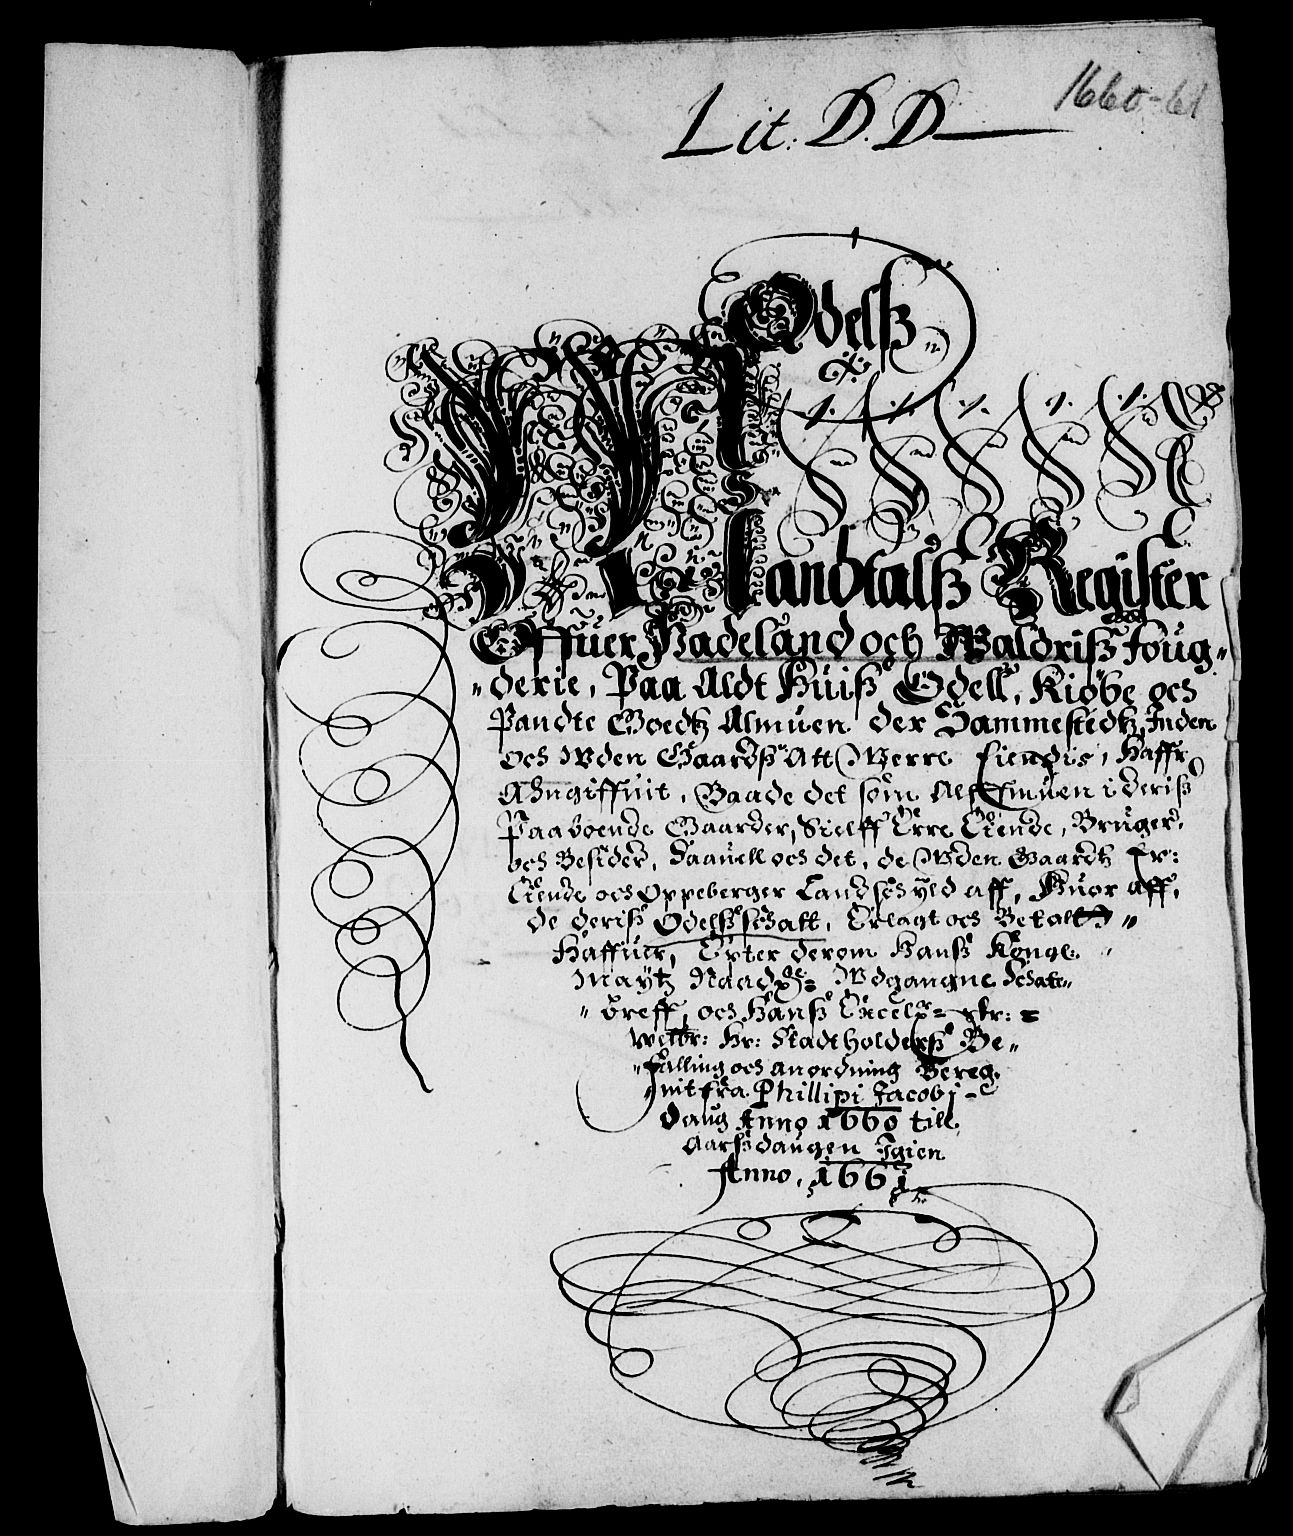 1660-61
Lit. D. D
Odelsß
Mandtalsß Register
Offuer Hadeland och Waldrisß foug„
„derie, Paa Aldt Huisß Odell, Kiøbe och
Pandte Goedtz Almuen der Sammestedtz, Inden
och Wden Gaardsß Att Werre Eiendis, Haffr
Angiffuit, Baade det som Almuen i derisß
Paaboende Gaarder, Sielff Erre Eiende, Bruger,
och Besider, Saauell och det, de Wden Gaardtz Er:
Eiende och Oppeberger Landschyld aff, Huor aff,
de derisß Odelsß schatt, Erlagt och Betalt„
Haffuer, Epter derom Hansß Kongl:
Maytz Naadgste Wdgangne Schatte„
„breff, och Hansß Excel:
Welbr: Hr: Stadtholdersß Be„
„falling och anordning Bereg„
„nit fra Phillipi Jacobj
daug Anno 1660 till
Aarsßdaugen Igien
Anno, 1661